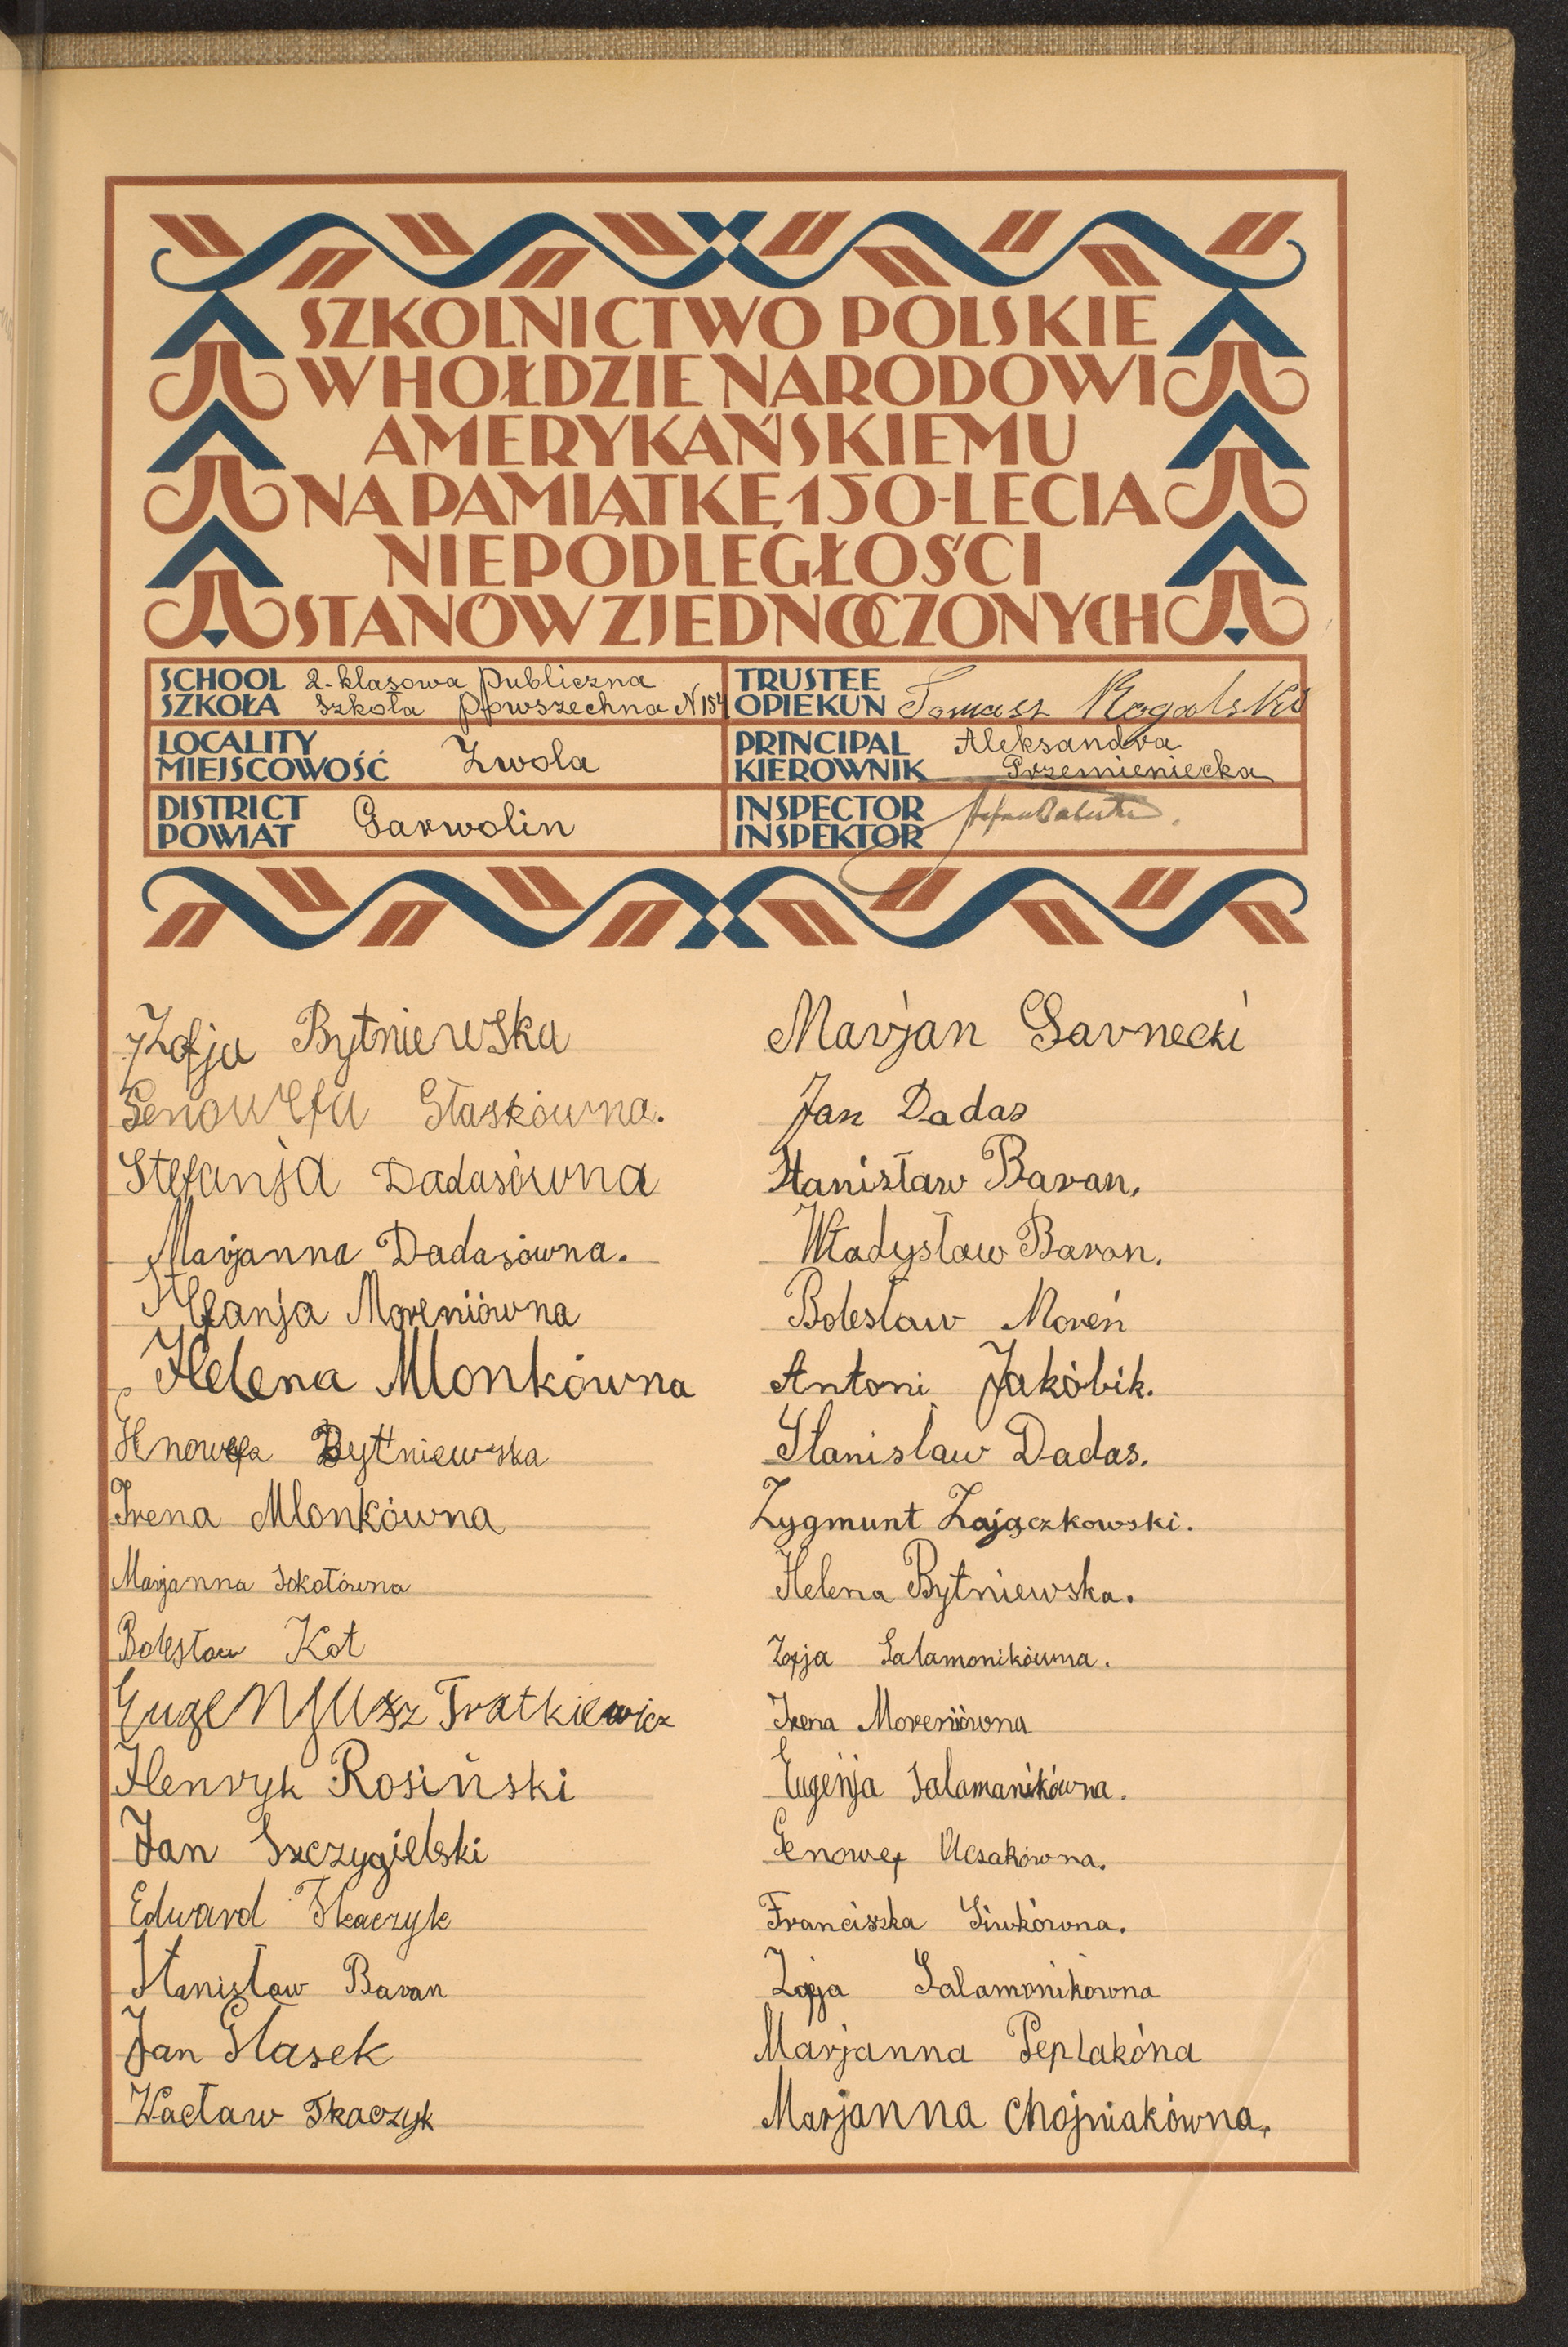 SZKOLNICTWO POLSKIE
W HOŁDZIE NARODOWI
AMERYKAŃSKIEMU
NA PAMIĄTKĘ 150-LECIA
NIEPODLEGŁOŚCI
STANÓW ZJEDNOCZONYCH
SCHOOL SZKOŁA 2-klasowa Publiczna
Szkoła Powszechna N 154
TRUSTEE OPIEKUN Tomasz Rogalski
LOCALITY MIEJSCOWOŚĆ Zwola
PRINCIPAL KIEROWNIK Aleksandra
Przemieniecka
DISTRICT POWIAT Garwolin
INSPECTOR INSPEKTOR
Zofja Bytniewska
Genowefa Głaskówna.
Stefanja Dadasówna
Marjanna Dadasówna.
Stefanja Moreniówna
Helena Mlonkówna
Genowefa Bytniewska
Irena Mlonkówna
Marjanna Sokołówna
Bolesław Kot
Eugenjusz Tratkiewicz
Henryk Rosiński
Jan Szczygielski
Edward Tkaczyk
Stanisław Baran
Jan Głasek
Wacław Tkaczyk
Marjan Garnecki
Jan Dadas
Stanisław Baran,
Władysław Baran,
Bolesław Moreń
Antoni Jakóbik.
Stanislaw Dadas.
Zygmunt Zajączkowski.
Helena Bytniewska.
Zofja Salamonikówna.
Irena Moreniówna
Eugenja Salamanikówna.
Genowef
Franciszka Siwkówna.
Zofja Salamonikówna
Marjanna Peplakóna
Marjanna Chojniakówna,